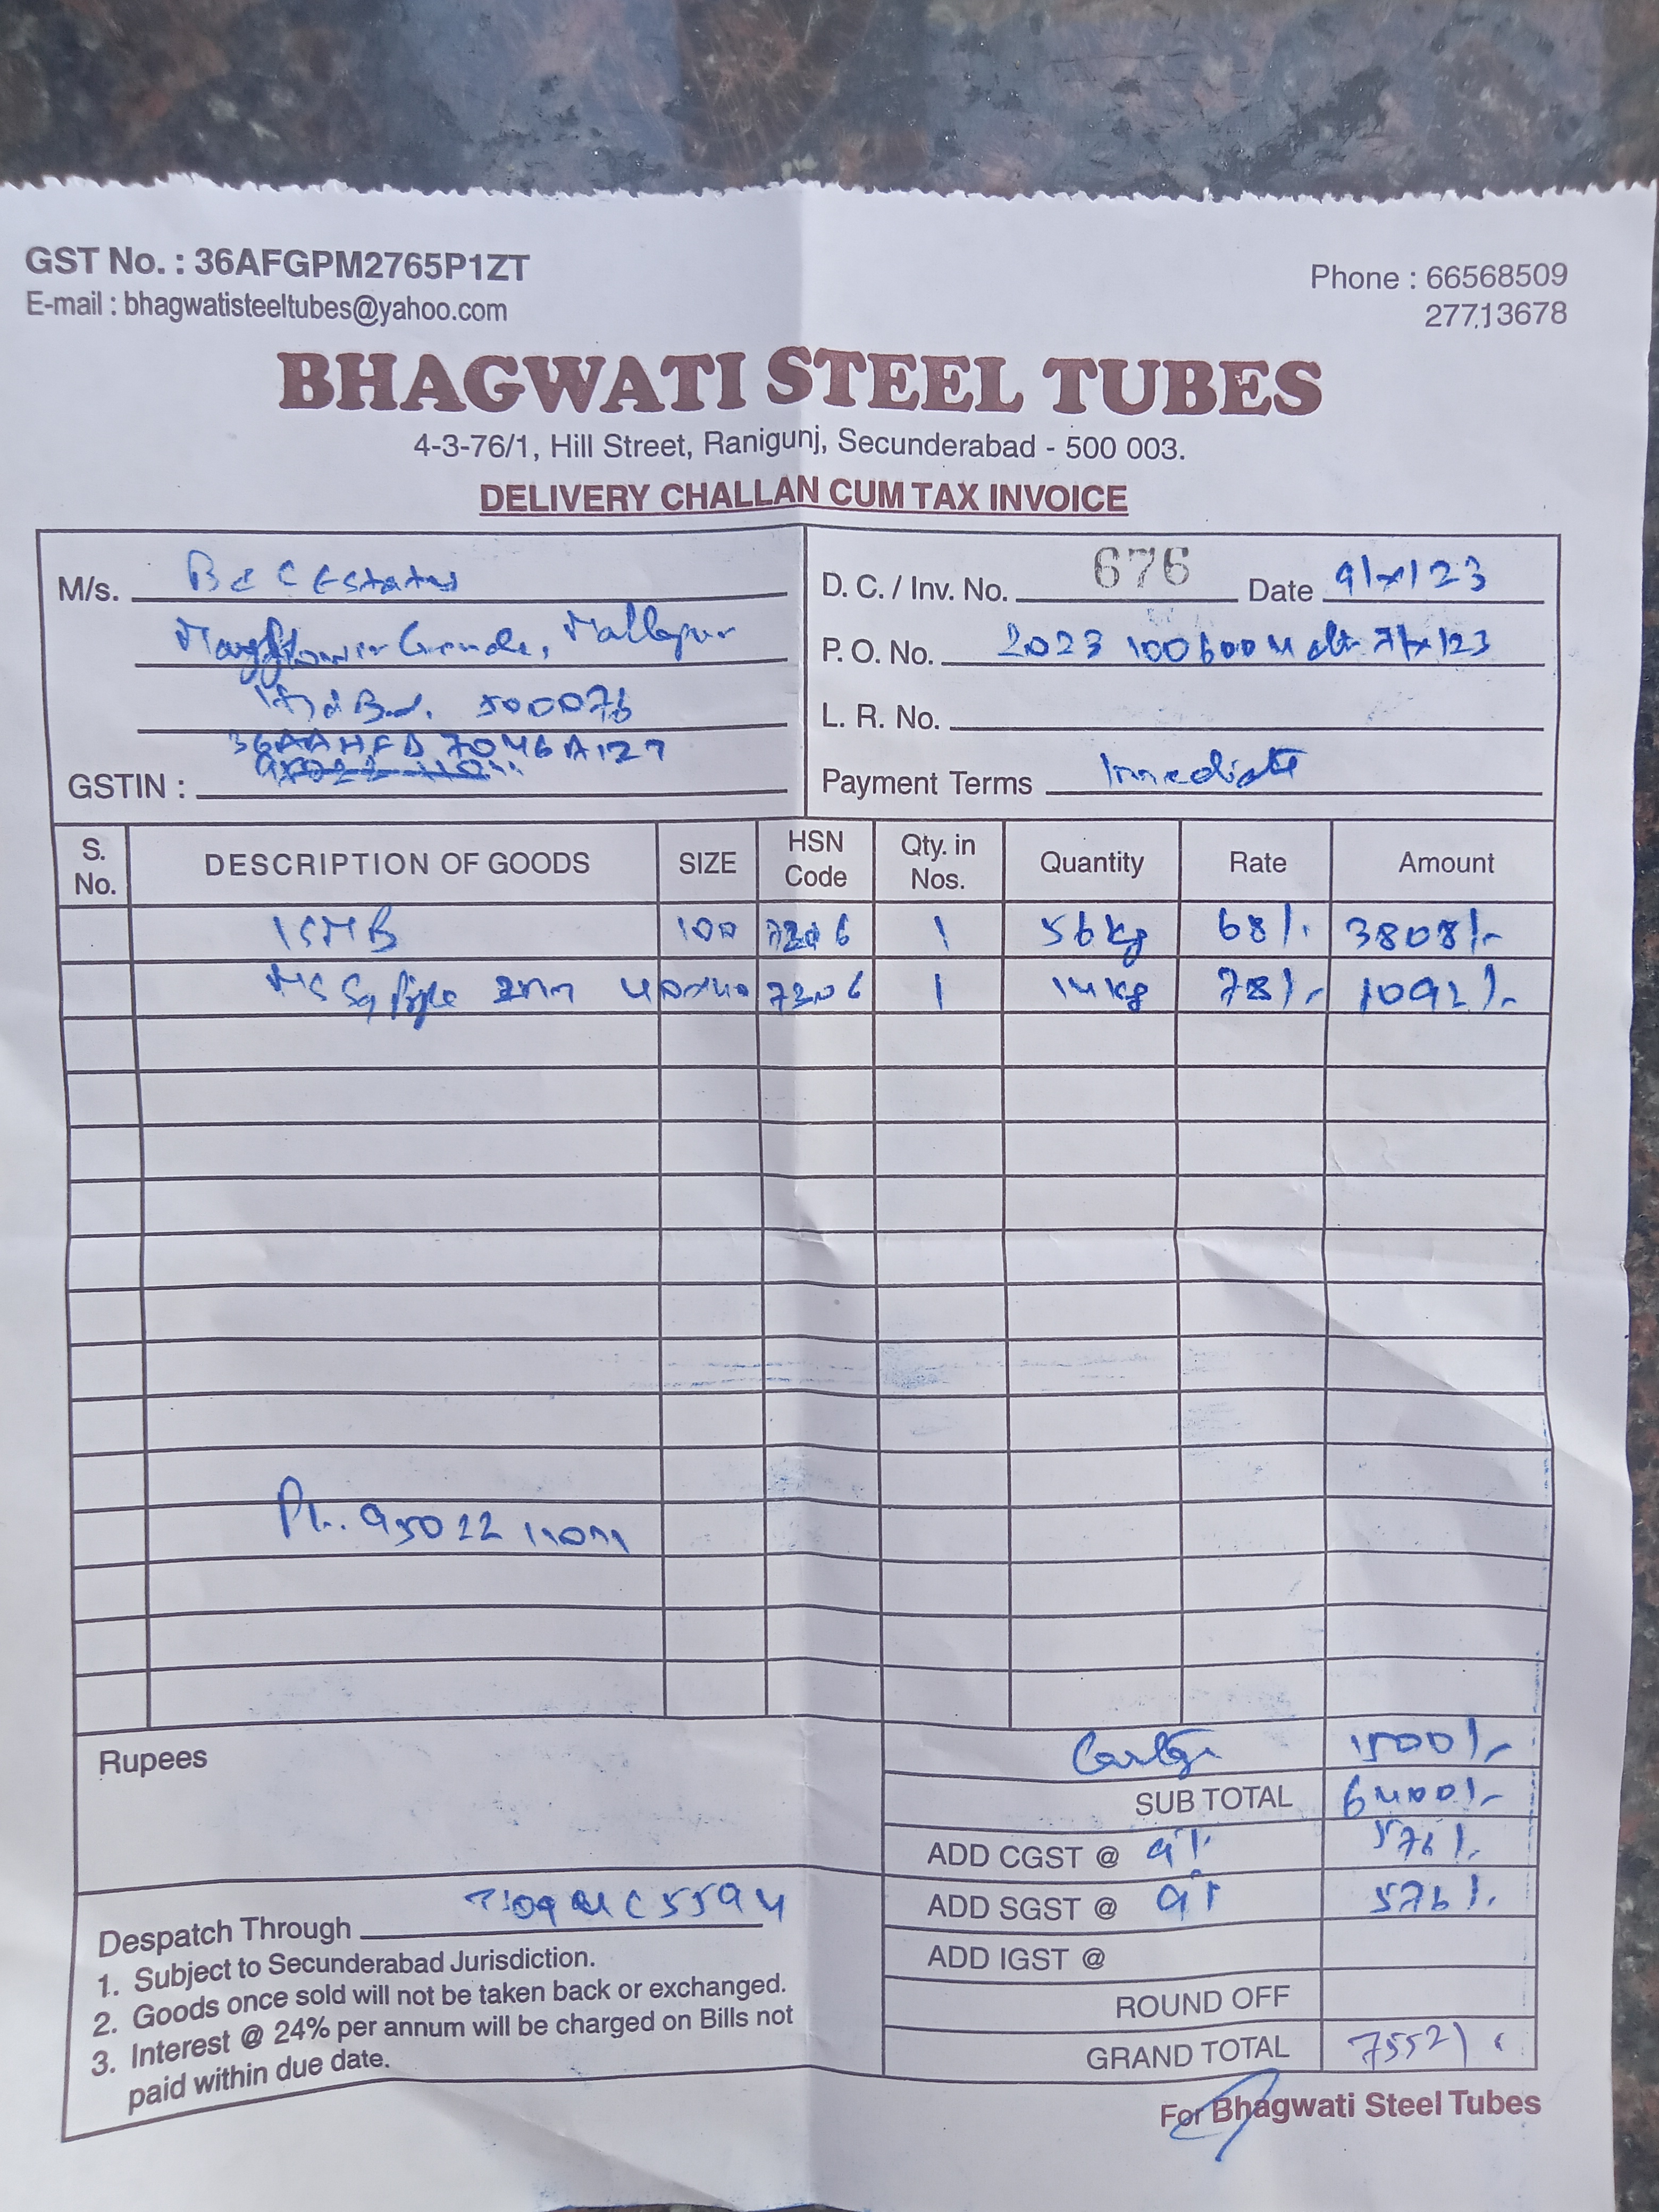 GST No. : 36AFGPM2765P1ZT
E-mail : bhagwatisteeltubes@yahoo.com
Phone : 66568509
27713678
BHAGWATI STEEL TUBES
4-3-76/1, Hill Street, Ranigunj, Secunderabad - 500 003.
DELIVERY CHALLAN CUM TAX INVOICE
M/s. B & C Estates
Mayflower Grande, Mallapur
500076
GSTIN : 36AAHFB7046A1Z7
D. C. / Inv. No. 676 Date 9/x/23
P. O. No. 2023 1006004 dt. 7/x/23
L. R. No.
Payment Terms Immediate
S. No. DESCRIPTION OF GOODS SIZE HSN Code Qty. in Nos. Quantity Rate Amount
ISMB 100 7206 1 56kg 68/- 3808/-
MS Sq Pipe 2mm 40x40 7306 1 14kg 78/- 1092/-
Ph. 95022
Rupees
Cartage 1500/-
SUB TOTAL 6400/-
ADD CGST @ 9% 576/-
ADD SGST @ 9% 576/-
ADD IGST @
ROUND OFF
GRAND TOTAL 7552/-
Despatch Through
1. Subject to Secunderabad Jurisdiction.
2. Goods once sold will not be taken back or exchanged.
3. Interest @ 24% per annum will be charged on Bills not
paid within due date.
For Bhagwati Steel Tubes